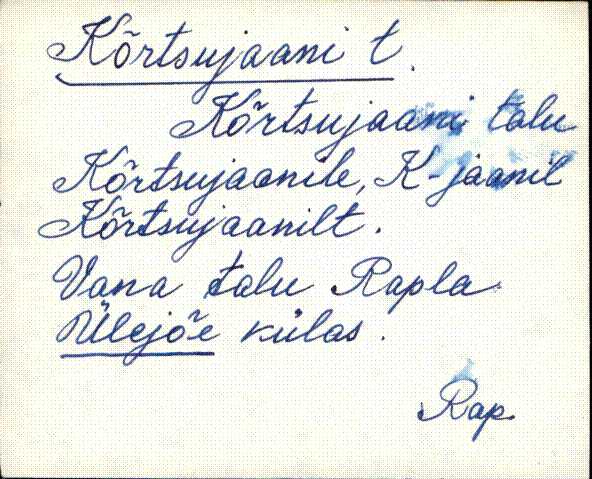 Kõrtsujaani t.
Kõrtsujaani talu
Kõrtsujaanile, K-jaanil
Kõrtsujaanilt.
Vana talu Rapla
Ülejõe külas.
Rap.